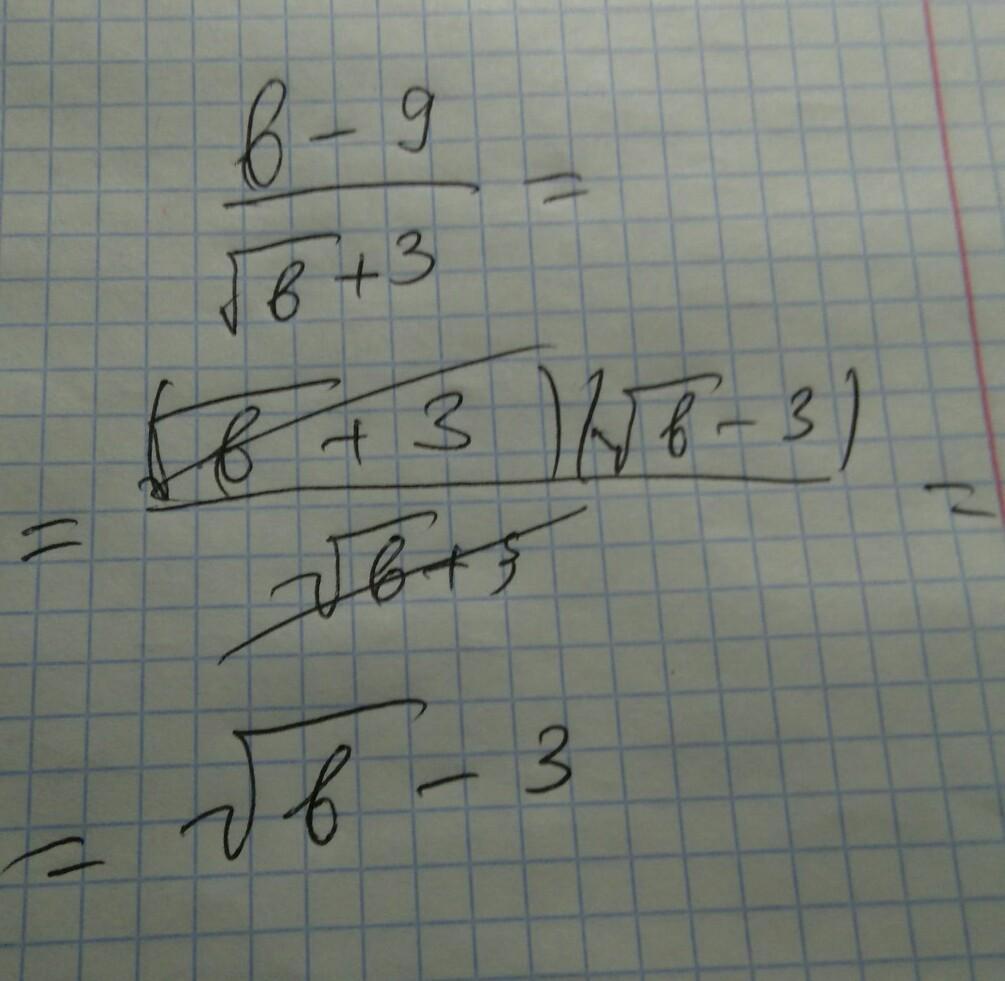 b - 9
√b + 3 =
= (√b + 3)(√b - 3)
√b + 3 =
= √b - 3